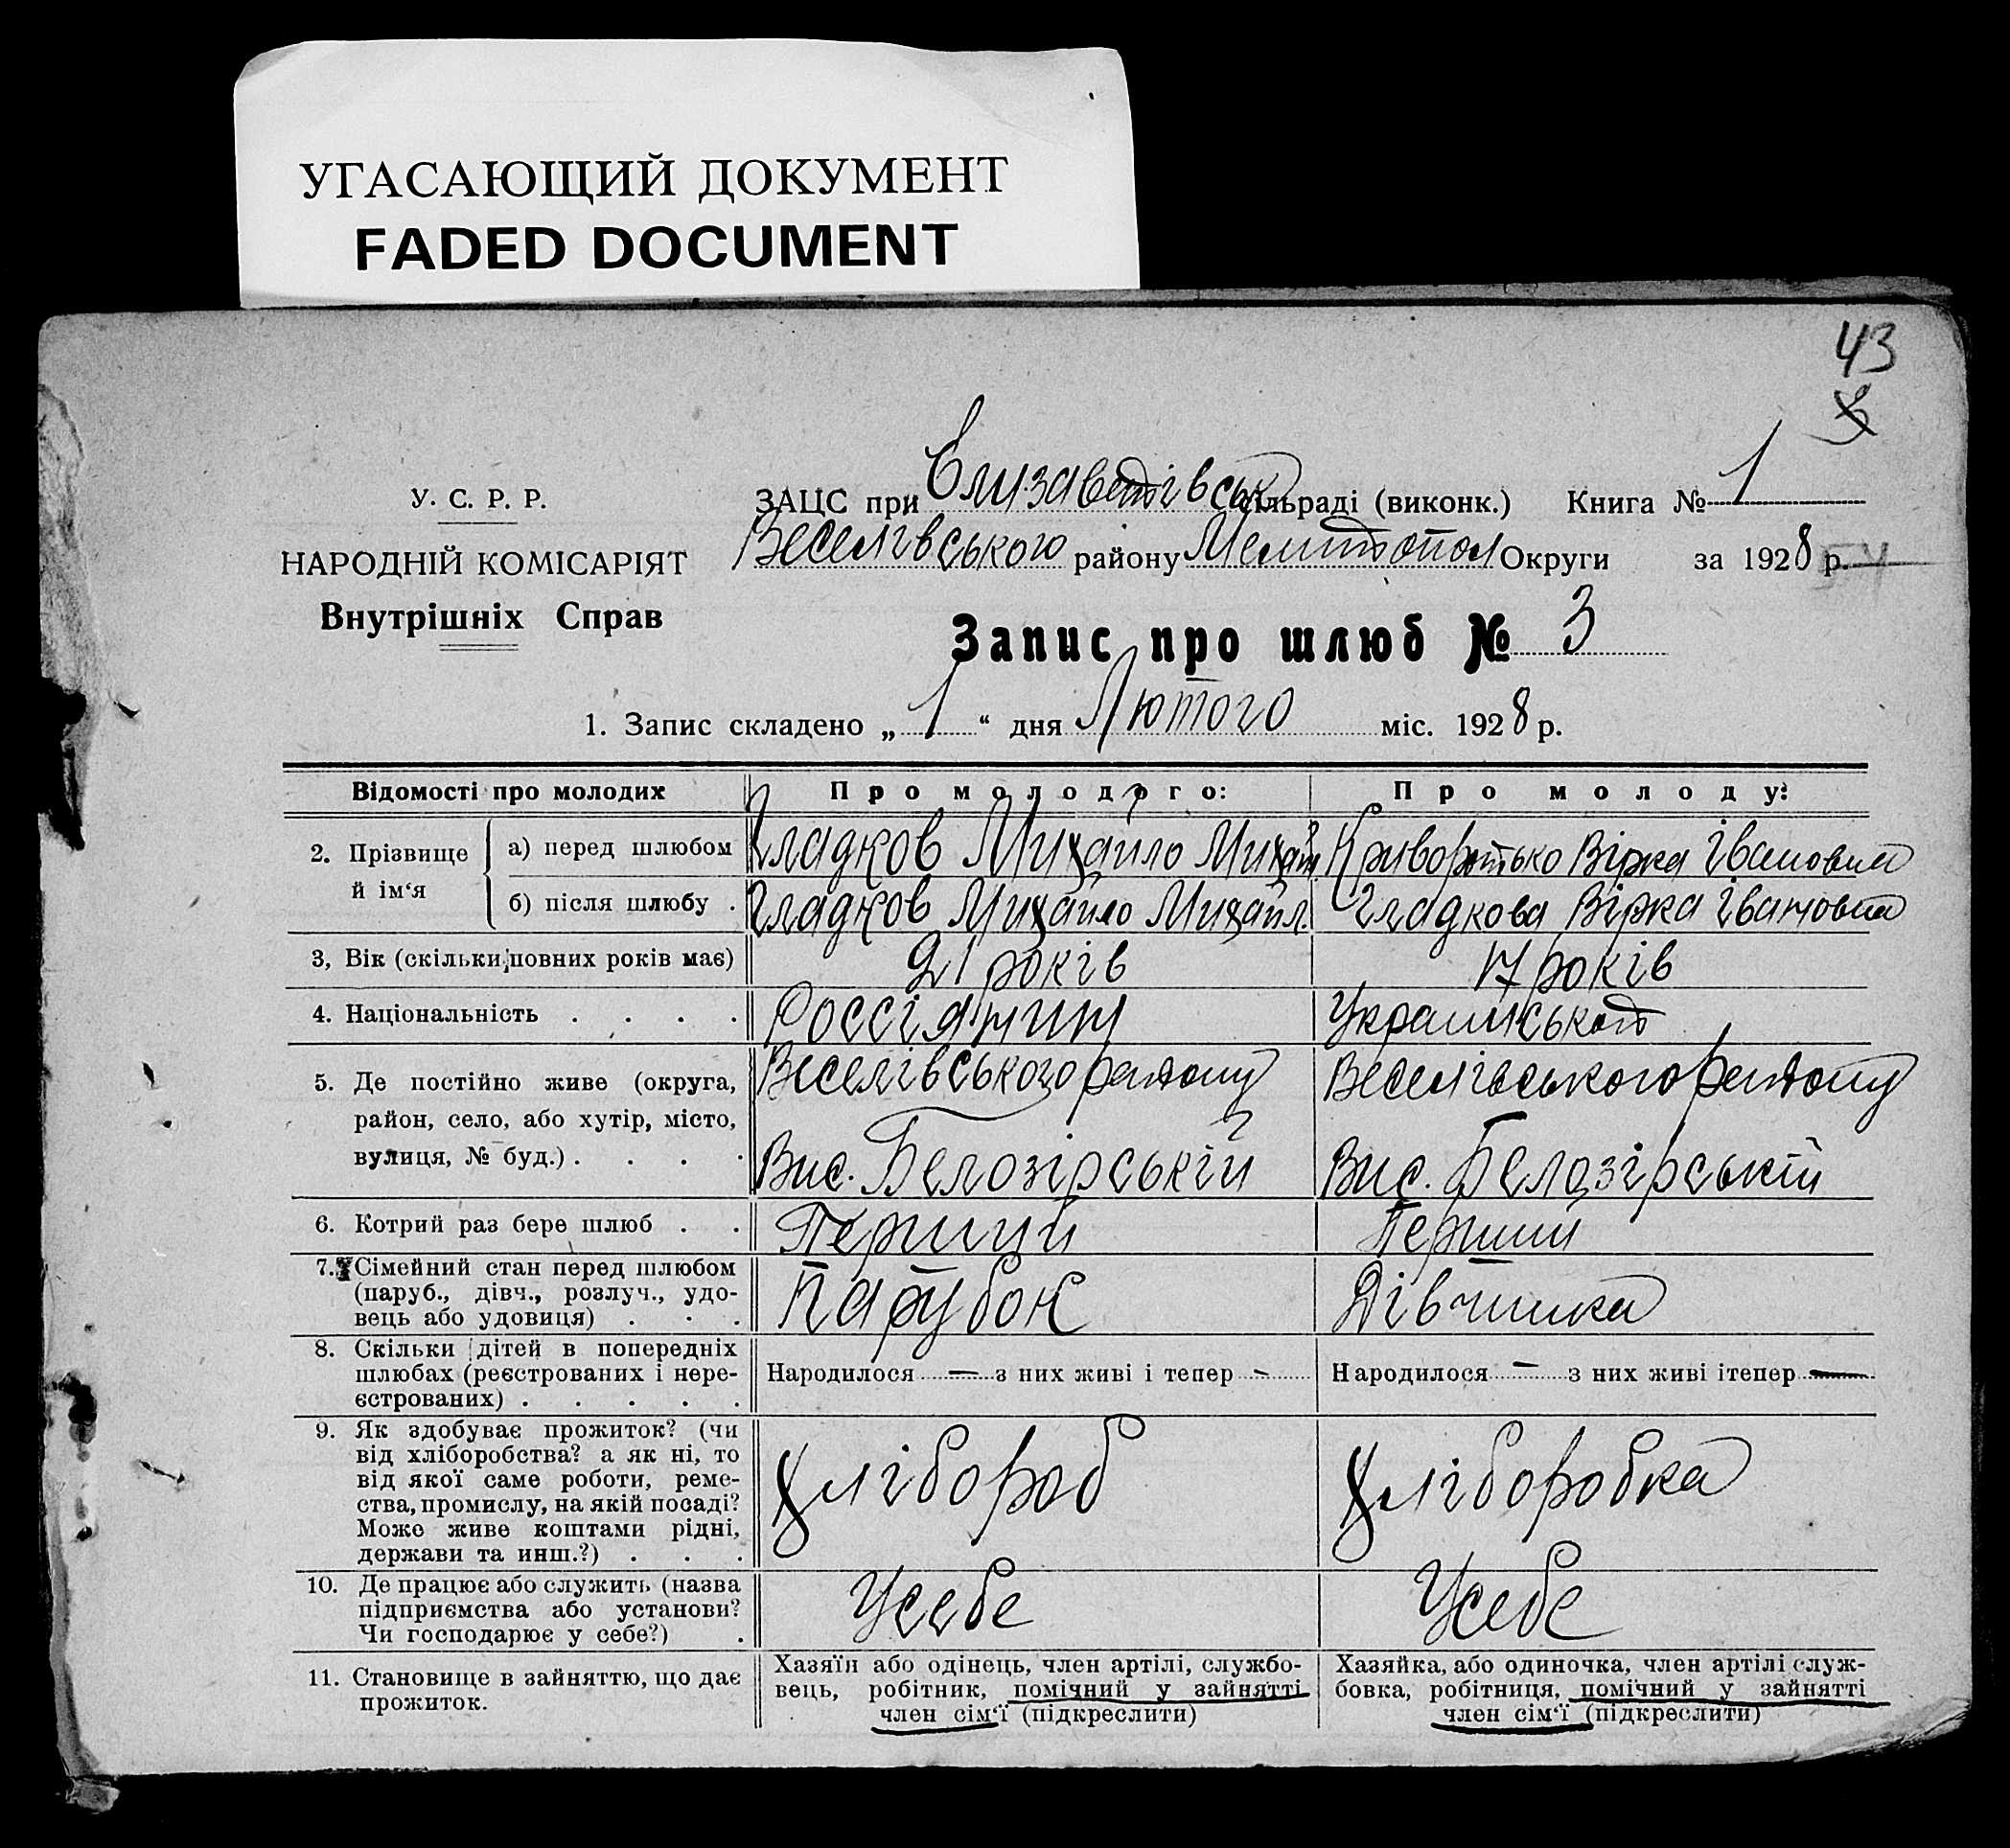 УГАСАЮЩИЙ ДОКУМЕНТ
FADED DOCUMENT
43
У. С. Р. Р.
НАРОДНІЙ КОМІСАРІЯТ
Внутрішніх Справ
ЗАЦС при Єлизаветівськ сільраді (виконк.) Книга № 1
Веселівського району Мелитопол Округи за 1928 р.
Запис про шлюб № 3
1. Запис складено „1“ дня Лютого міс. 1928 р.
Відомості про молодих
Про молодого:
Про молоду:
2. Прізвище й ім‘я
а) перед шлюбом
Гладков Михайло Михайл.
Криворотько Вірка Івановна
б) після шлюбу .
Гладков Михайло Михайл.
Гладкова Вірка Івановна
3, Вік (скільки повних років має)
21 років
17 років
4. Національність . . . .
Россіянин
Українська
5. Де постійно живе (округа,
район, село, або хутір, місто,
вулиця, № буд.) . . . .
Веселівського району
Вис. Белозірській
Веселівського району
Вис. Белозірській
6. Котрий раз бере шлюб . .
Перший
Перший
7. Сімейний стан перед шлюбом
(паруб., дівч., розлуч., удо-
вець або удовиця) . . .
Парубок
Дівчинка
8. Скільки дітей в попередніх
шлюбах (реєстрованих і нере-
єстрованих) . . . . .
Народилося — з них живі і тепер -
Народилося — з них живі ітепер —
9. Як здобуває прожиток? (чи
від хліборобства? а як ні, то
від якої саме роботи, реме-
ства, промислу, на якій посаді?
Може живе коштами рідні,
держави та инш.?) . . .
Хлібороб
Хліборобка
10. Де працює або служить (назва
підприємства або установи?
Чи господарює у себе?) .
Усебе
Усебе
11. Становище в зайняттю, що дає
прожиток.
Хазяїн або одінець, член артілі, службо-
вець, робітник, помічний у зайнятті
член сім‘ї (підкреслити)
Хазяйка, або одиночка, член артілі служ-
бовка, робітниця, помічний у зайнятті
член сім‘ї (підкреслити)